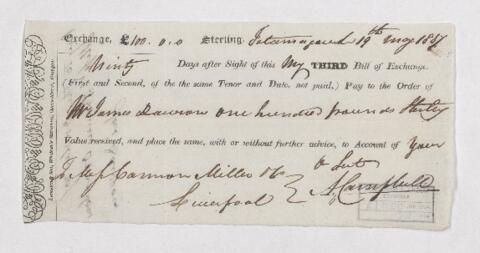 Exchange, £100.0.0 Sterling. 19th May
Ninty Days after Sight of this My THIRD Bill of Exchange.
(First and Second, of the the same Tenor and Date, not paid,) Pay to the Order of
Mr James Dawson one hundred pounds Sterling
Value received, and place the same, with or without further advice, to Account of Your
Ob Svt
To Mess Cannon Miller & Co
A Campbell
Liverpool